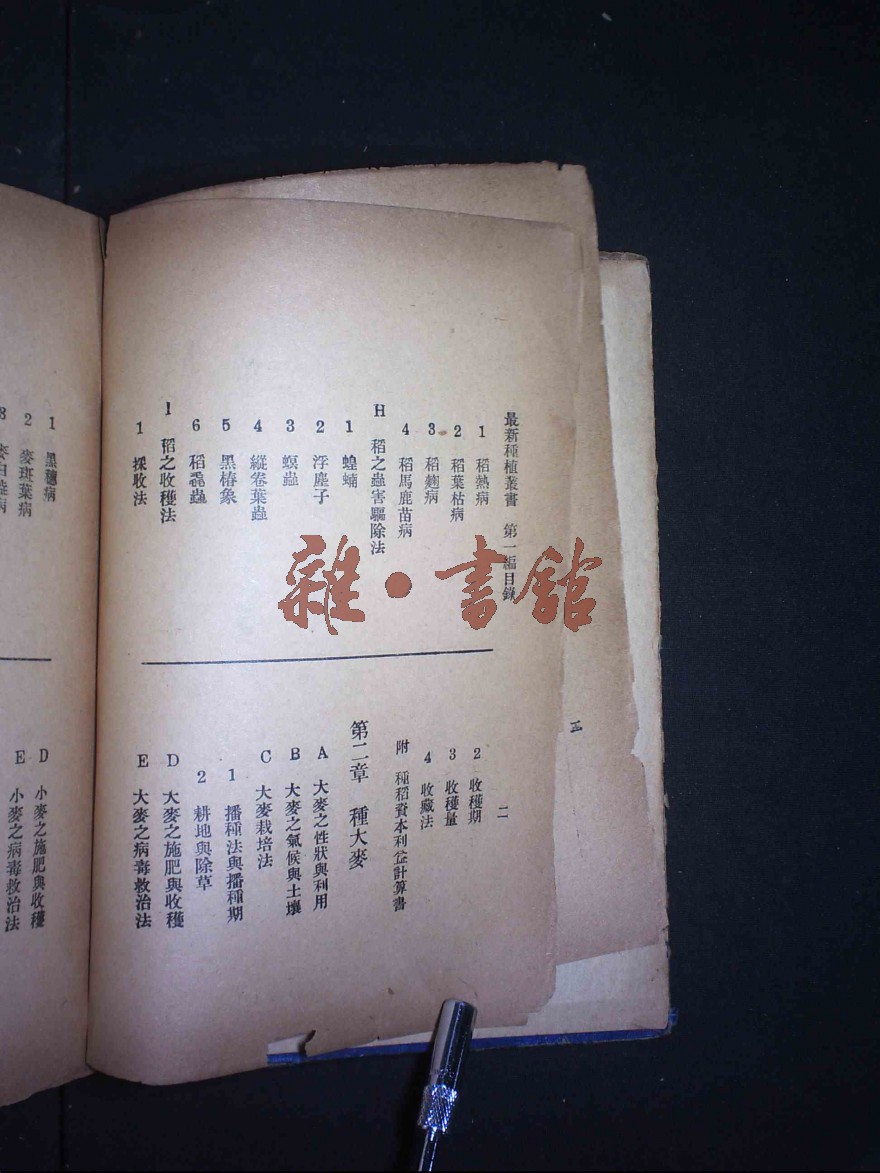 最新種植叢書 第一編目錄
1 稻熱病
2 稻葉枯病
3 稻麴病
4 稻馬鹿苗病
H 稻之蟲害驅除法
1 蝗蝻
2 浮塵子
3 螟蟲
4 縱卷葉蟲
5 黑椿象
6 稻螽蟲
I 稻之收穫法
1 採收法
二
2 收穫期
3 收穫量
4 收藏法
附 種稻資本利益計算書
第二章 種大麥
A 大麥之性狀與利用
B 大麥之氣候與土壤
C 大麥栽培法
1 播種法與播種期
2 耕地與除草
D 大麥之施肥與收穫
E 大麥之病毒救治法
1 黑穗病
2 麥斑葉病
3
D 小麥之施肥與收穫
E 小麥之病毒救治法
三
雜·書館